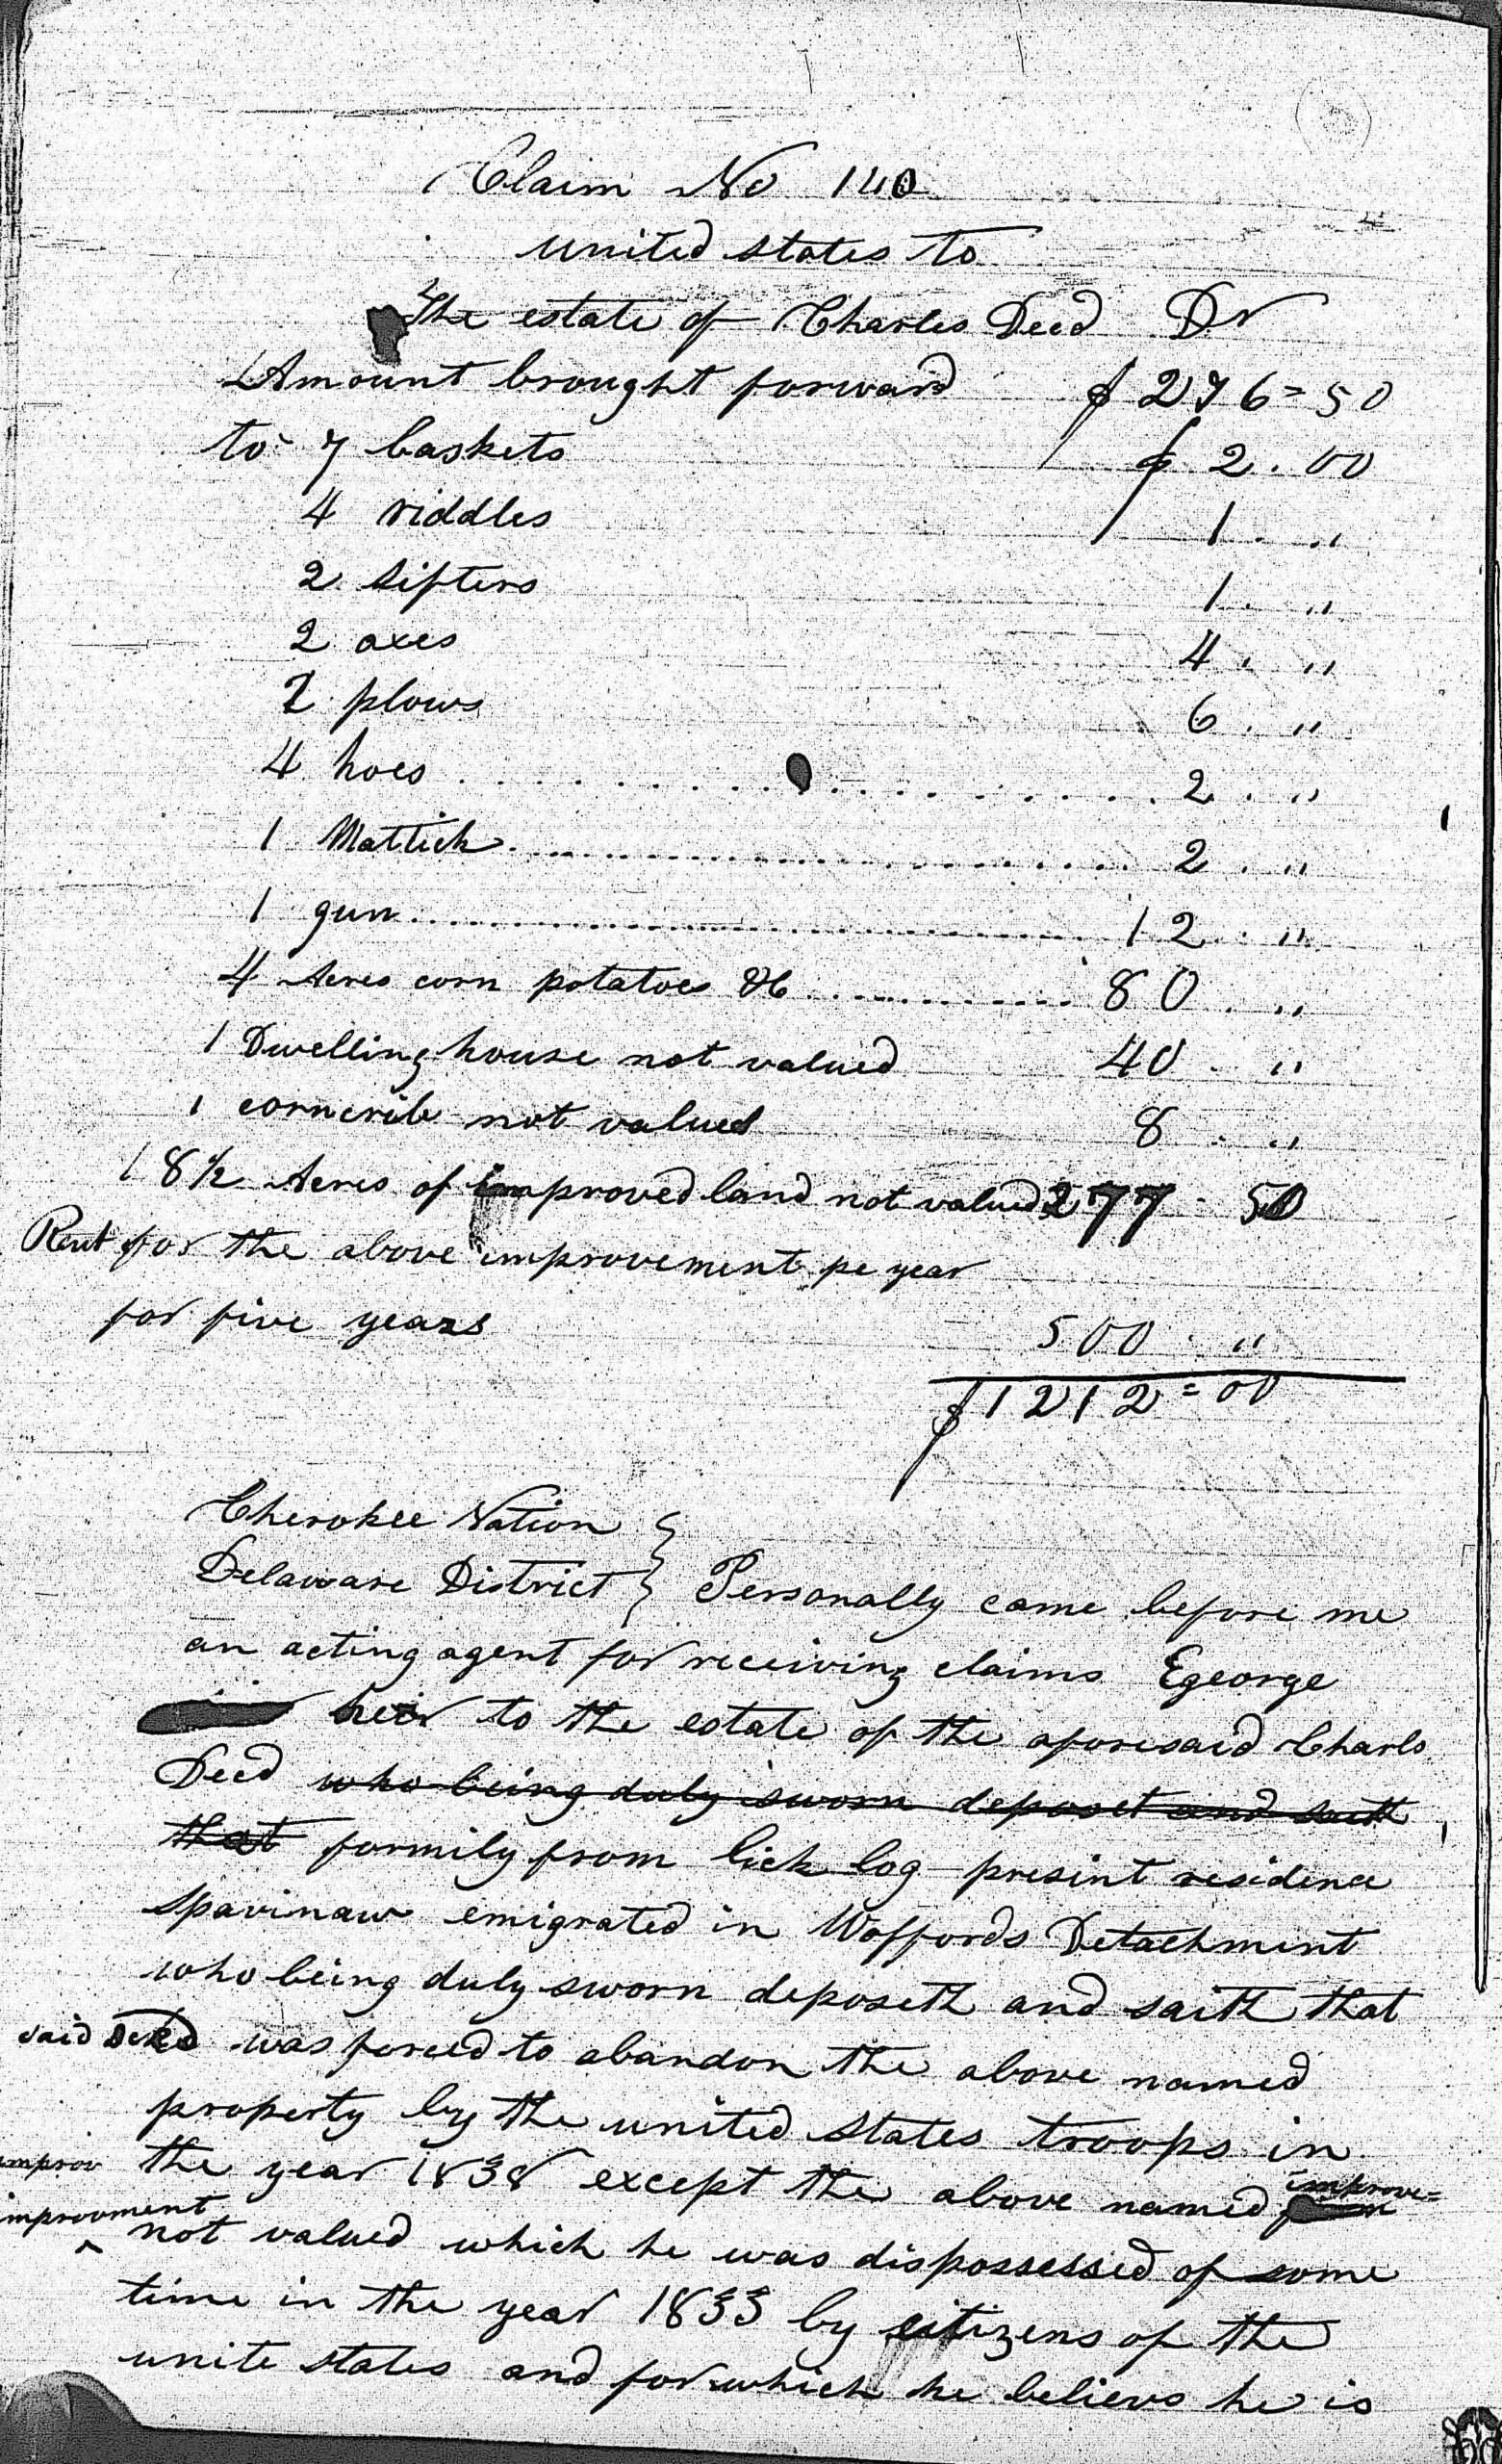 Claim No 140
united states to
The estate of Charles Deed Dr
Amount brought forward $276=50
to 7 baskets $2.00
4 riddles 1. "
2 sifters 1. "
2 axes 4. "
2 plows 6. "
4 hoes . . . . . . . . . . 2. "
1 Mattick . . . . . . . . . . 2. "
1 gun . . . . . . . . . . 12. "
4 Acres corn potatoes &c . . . . . . . . . . 80. "
1 Dwelling house not valued 40. "
1 corncrib not valued 8. "
18½ Acres of improved land not valued 277. 50
Rent for the above improvement pe year
for five years 500. "
$1212=00
Cherokee Nation }
Delaware District } Personally came before me
an acting agent for receiving claims Egeorge
heir to the estate of the aforesaid Charls
Deed who being duly sworn deposet and saith
that formily from lick log present residence
spavinaw emigrated in Woffords Detachment
who being duly sworn deposeth and saith that
said Deed was forced to abandon the above named
property by the united states troops in
improv the year 1838 except the above named improve=
improvment
^ not valued which he was dispossessed of some
time in the year 1833 by citizens of the
unite states and for which he believs he is